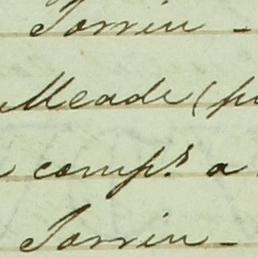 Torriu -
Meade (pi
comp.s a
Torriu -